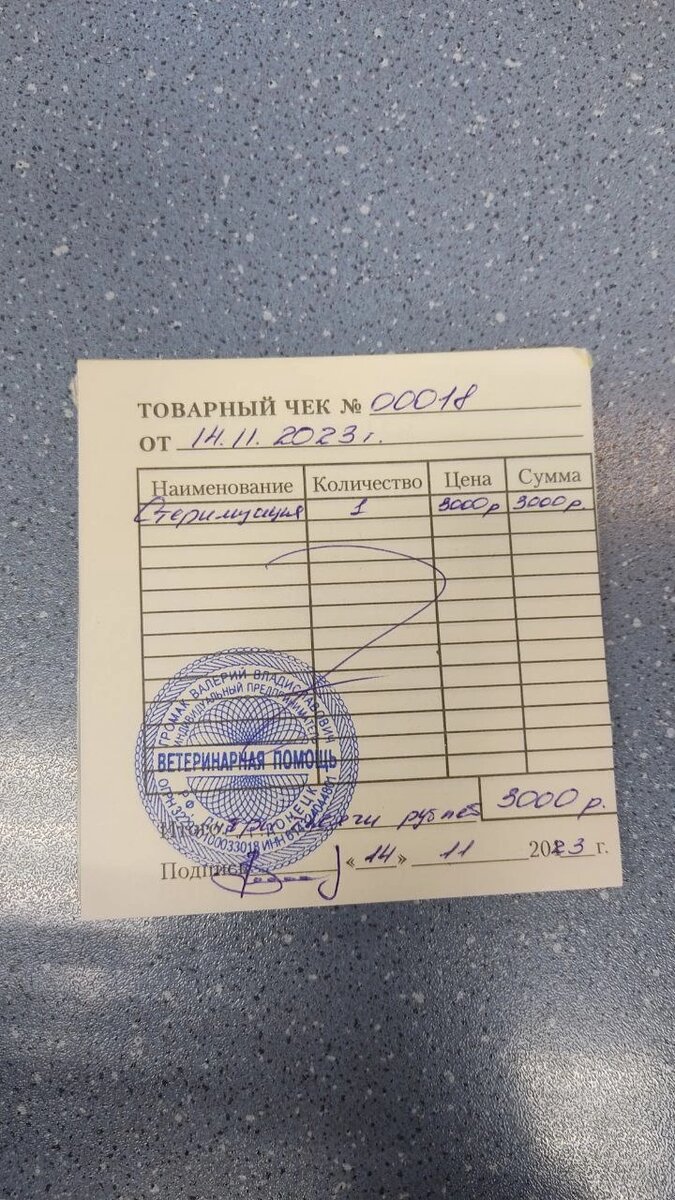 ТОВАРНЫЙ ЧЕК № 00018
ОТ 14.11.2023г.
Наименование Количество Цена Сумма
Стерилизация 1 3000р 3000р.
ГРОМАК ВАЛЕРИЙ ВЛАДИСЛАВОВИЧ
ИНДИВИДУАЛЬНЫЙ ПРЕДПРИНИМАТЕЛЬ
ВЕТЕРИНАРНАЯ ПОМОЩЬ
РФ ДОНЕЦК
ОГРН ИНН
Итого: три тысячи рублей 3000 р.
Подпись «14» 11 2023 г.